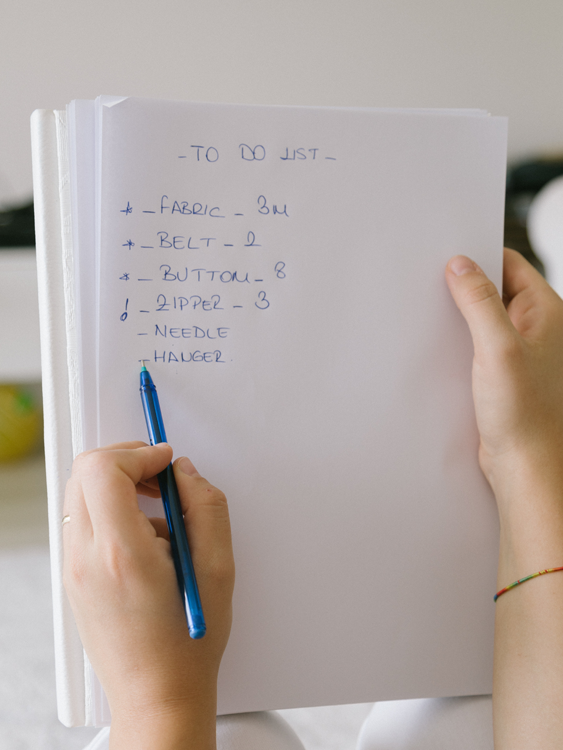 -TO DO LIST-
* - FABRIC - 3M
* - BELT - 2
* - BUTTOM - 8
! - ZIPPER - 3
- NEEDLE
- HANGER.